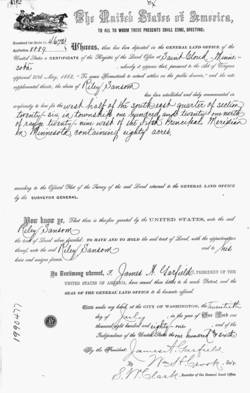 The United States of America,
TO ALL TO WHOM THESE PRESENTS SHALL COME, GREETING:
Whereas, there has been deposited in the GENERAL LAND OFFICE of the
United States a CERTIFICATE of the Register of the Land Office at Saint Cloud, Minne
sota, whereby it appears that, pursuant to the Act of Congress
approved 20th May, 1862, "To secure Homesteads to actual settlers on the public domain," and the acts
supplemental thereto, the claim of Riley Sansom
has been established and duly consummated in
conformity to law for the west half of the south east quarter of section
twenty six in township one hundred and twenty one north
of range twenty nine west of the Fifth Principal Meridian
in Minnesota containing eighty acres
according to the Official Plat of the Survey of the said Land returned to the GENERAL LAND OFFICE
by the SURVEYOR GENERAL.
Now know ye, That there is therefore granted by the UNITED STATES, unto the said
Riley Sansom
the tract of Land above described: TO HAVE AND TO HOLD the said tract of Land, with the appurtenances
thereof, unto the said Riley Sansom and to his
heirs and assigns forever.
In testimony whereof, I, James A. Garfield, PRESIDENT OF THE
UNITED STATES OF AMERICA, have caused these letters to be made Patent, and the
SEAL OF THE GENERAL LAND OFFICE to be hereunto affixed.
Given under my hand, at the CITY OF WASHINGTON, the twentieth
day of July, in the year of Our Lord one
thousand eight hundred and eighty one, and of the
Independence of the United States the one hundred and sixth
By the President: James A. Garfield
By Wm H. Crook, Sec'y.
S. W. Clark, Recorder of the General Land Office.